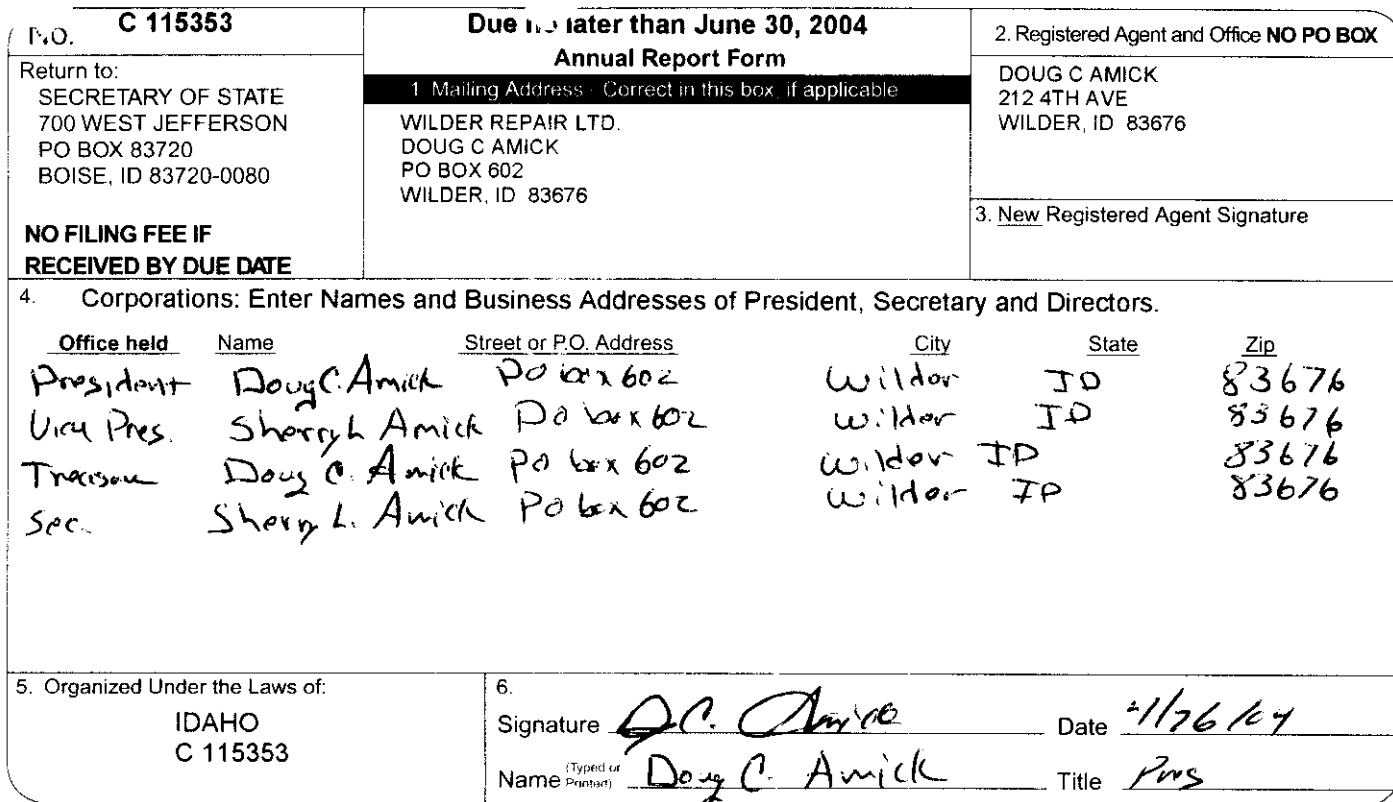 NO. C 115353
Return to:
SECRETARY OF STATE
700 WEST JEFFERSON
PO BOX 83720
BOISE, ID 83720-0080
NO FILING FEE IF
RECEIVED BY DUE DATE
Due no later than June 30, 2004
Annual Report Form
1 Mailing Address - Correct in this box, if applicable
WILDER REPAIR LTD.
DOUG C AMICK
PO BOX 602
WILDER, ID 83676
2. Registered Agent and Office NO PO BOX
DOUG C AMICK
212 4TH AVE
WILDER, ID 83676
3. New Registered Agent Signature
4. Corporations: Enter Names and Business Addresses of President, Secretary and Directors.
Office held Name Street or P.O. Address City State Zip
President Doug C. Amick PO box 602 Wilder ID 83676
Vice Pres. Sherry L Amick PO box 602 Wilder ID 83676
Doug C. Amick PO box 602 Wilder ID 83676
Sec. Sherry L. Amick PO box 602 Wilder ID 83676
5. Organized Under the Laws of:
IDAHO
C 115353
6.
Signature D.C. Amick Date
Name (Typed or Printed) Doug C. Amick Title Pres